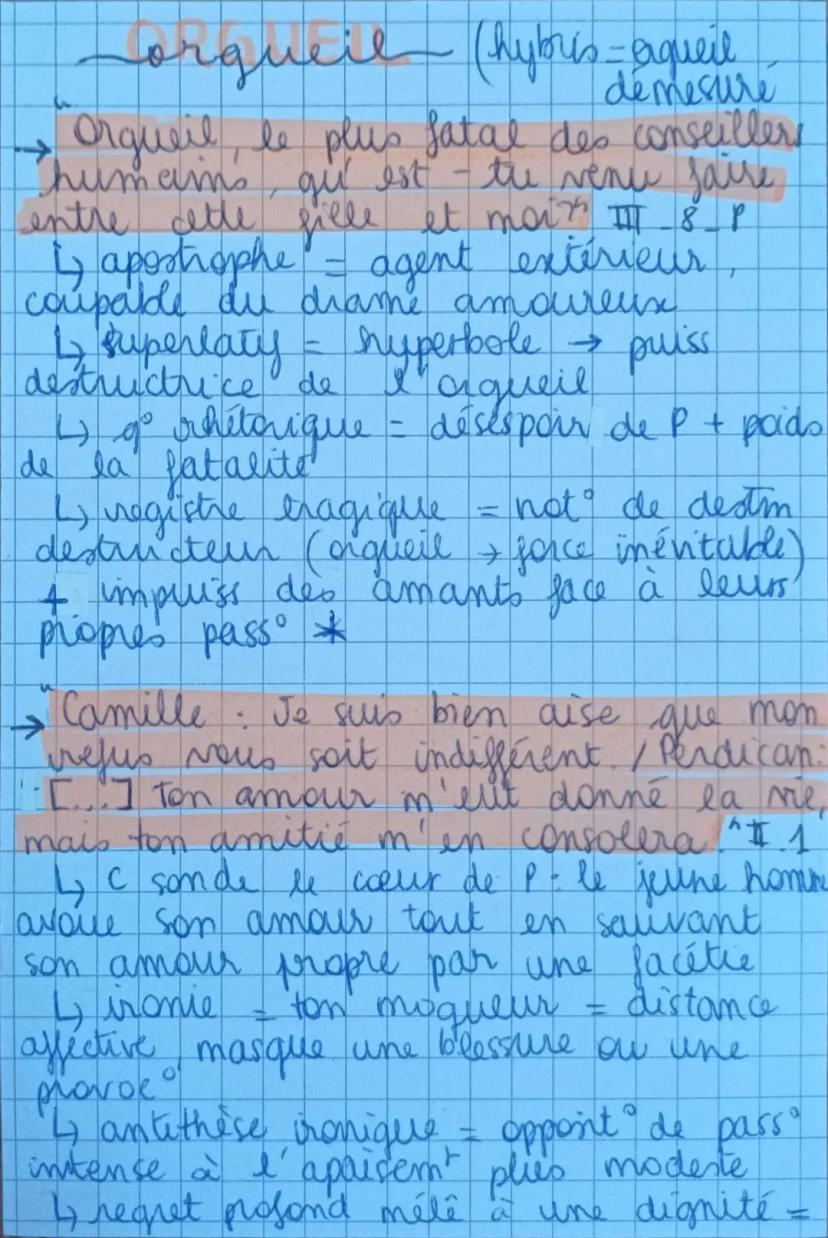 orgueil (hybris = orgueil
démesuré
→ "Orgueil, le plus fatal des conseillers
humains, qu'est-tu venu faire
entre cette fille et moi?" III_8_P
↳ apostrophe = agent extérieur,
coupable du drame amoureux
↳ superlatif = hyperbole → puiss
destructrice de l'orgueil
↳ q° rhétorique = désespoir de P + poids
de la fatalité
↳ registre tragique = not° de destin
destructeur (orgueil → force inévitable)
+ impuiss des amants face à leurs
propres pass° *
→ "Camille : Je suis bien aise que mon
refus vous soit indifférent. / Perdican :
[...] Ton amour m'eut donné la vie,
mais ton amitié m'en consolera." II.1
↳ C sonde le cœur de P : le jeune homme
avoue son amour tout en sauvant
son amour propre par une facétie
↳ ironie = ton moqueur = distance
affective, masque une blessure ou une
provoc°
↳ antithèse ironique = opposit° de pass°
intense à l'apaisemt plus modeste
↳ regret profond mêlé à une dignité =